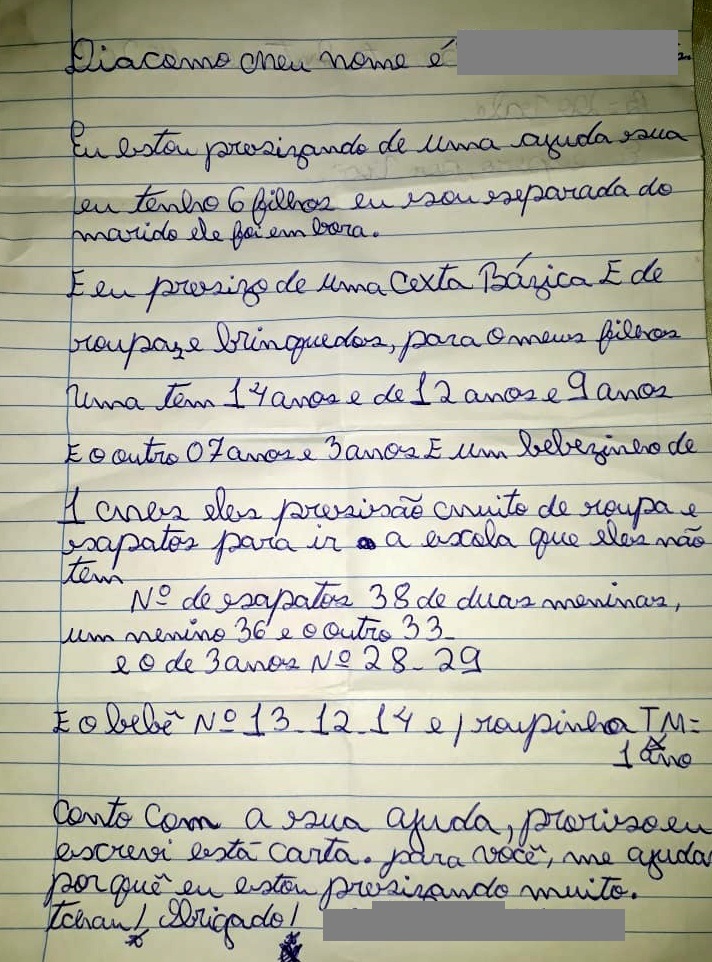 Diacomo meu nome é
Eu estou presizando de uma ajuda sua
eu tenho 6 filhos eu sou separada do
marido ele foi embora.
E eu presizo de uma Cexta Bázica E de
roupaz e brinquedos, para o meus filhos
Uma tem 14 anos e de 12 anos e 9 anos
E o outro 07 anos e 3 anos E um bebezinho de
1 mes eles presisão muito de roupa e
sapatos para ir a escola que eles não
tem
Nº de sapatos 38 de duas meninas,
um menino 36 e o outro 33-
e o de 3 anos Nº 28-29
E o bebê Nº 13-12-14 e / roupinha TM=
1 ano
Conto Com a sua ajuda, por isso eu
escrevi está carta. para você, me ajuda
porquê eu estou presizando muito.
tchau! Obrigado!